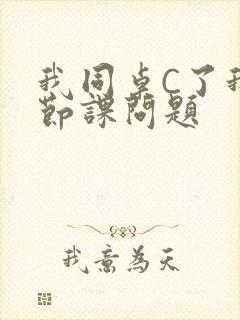 我同桌C了我
节課問題
我意為天